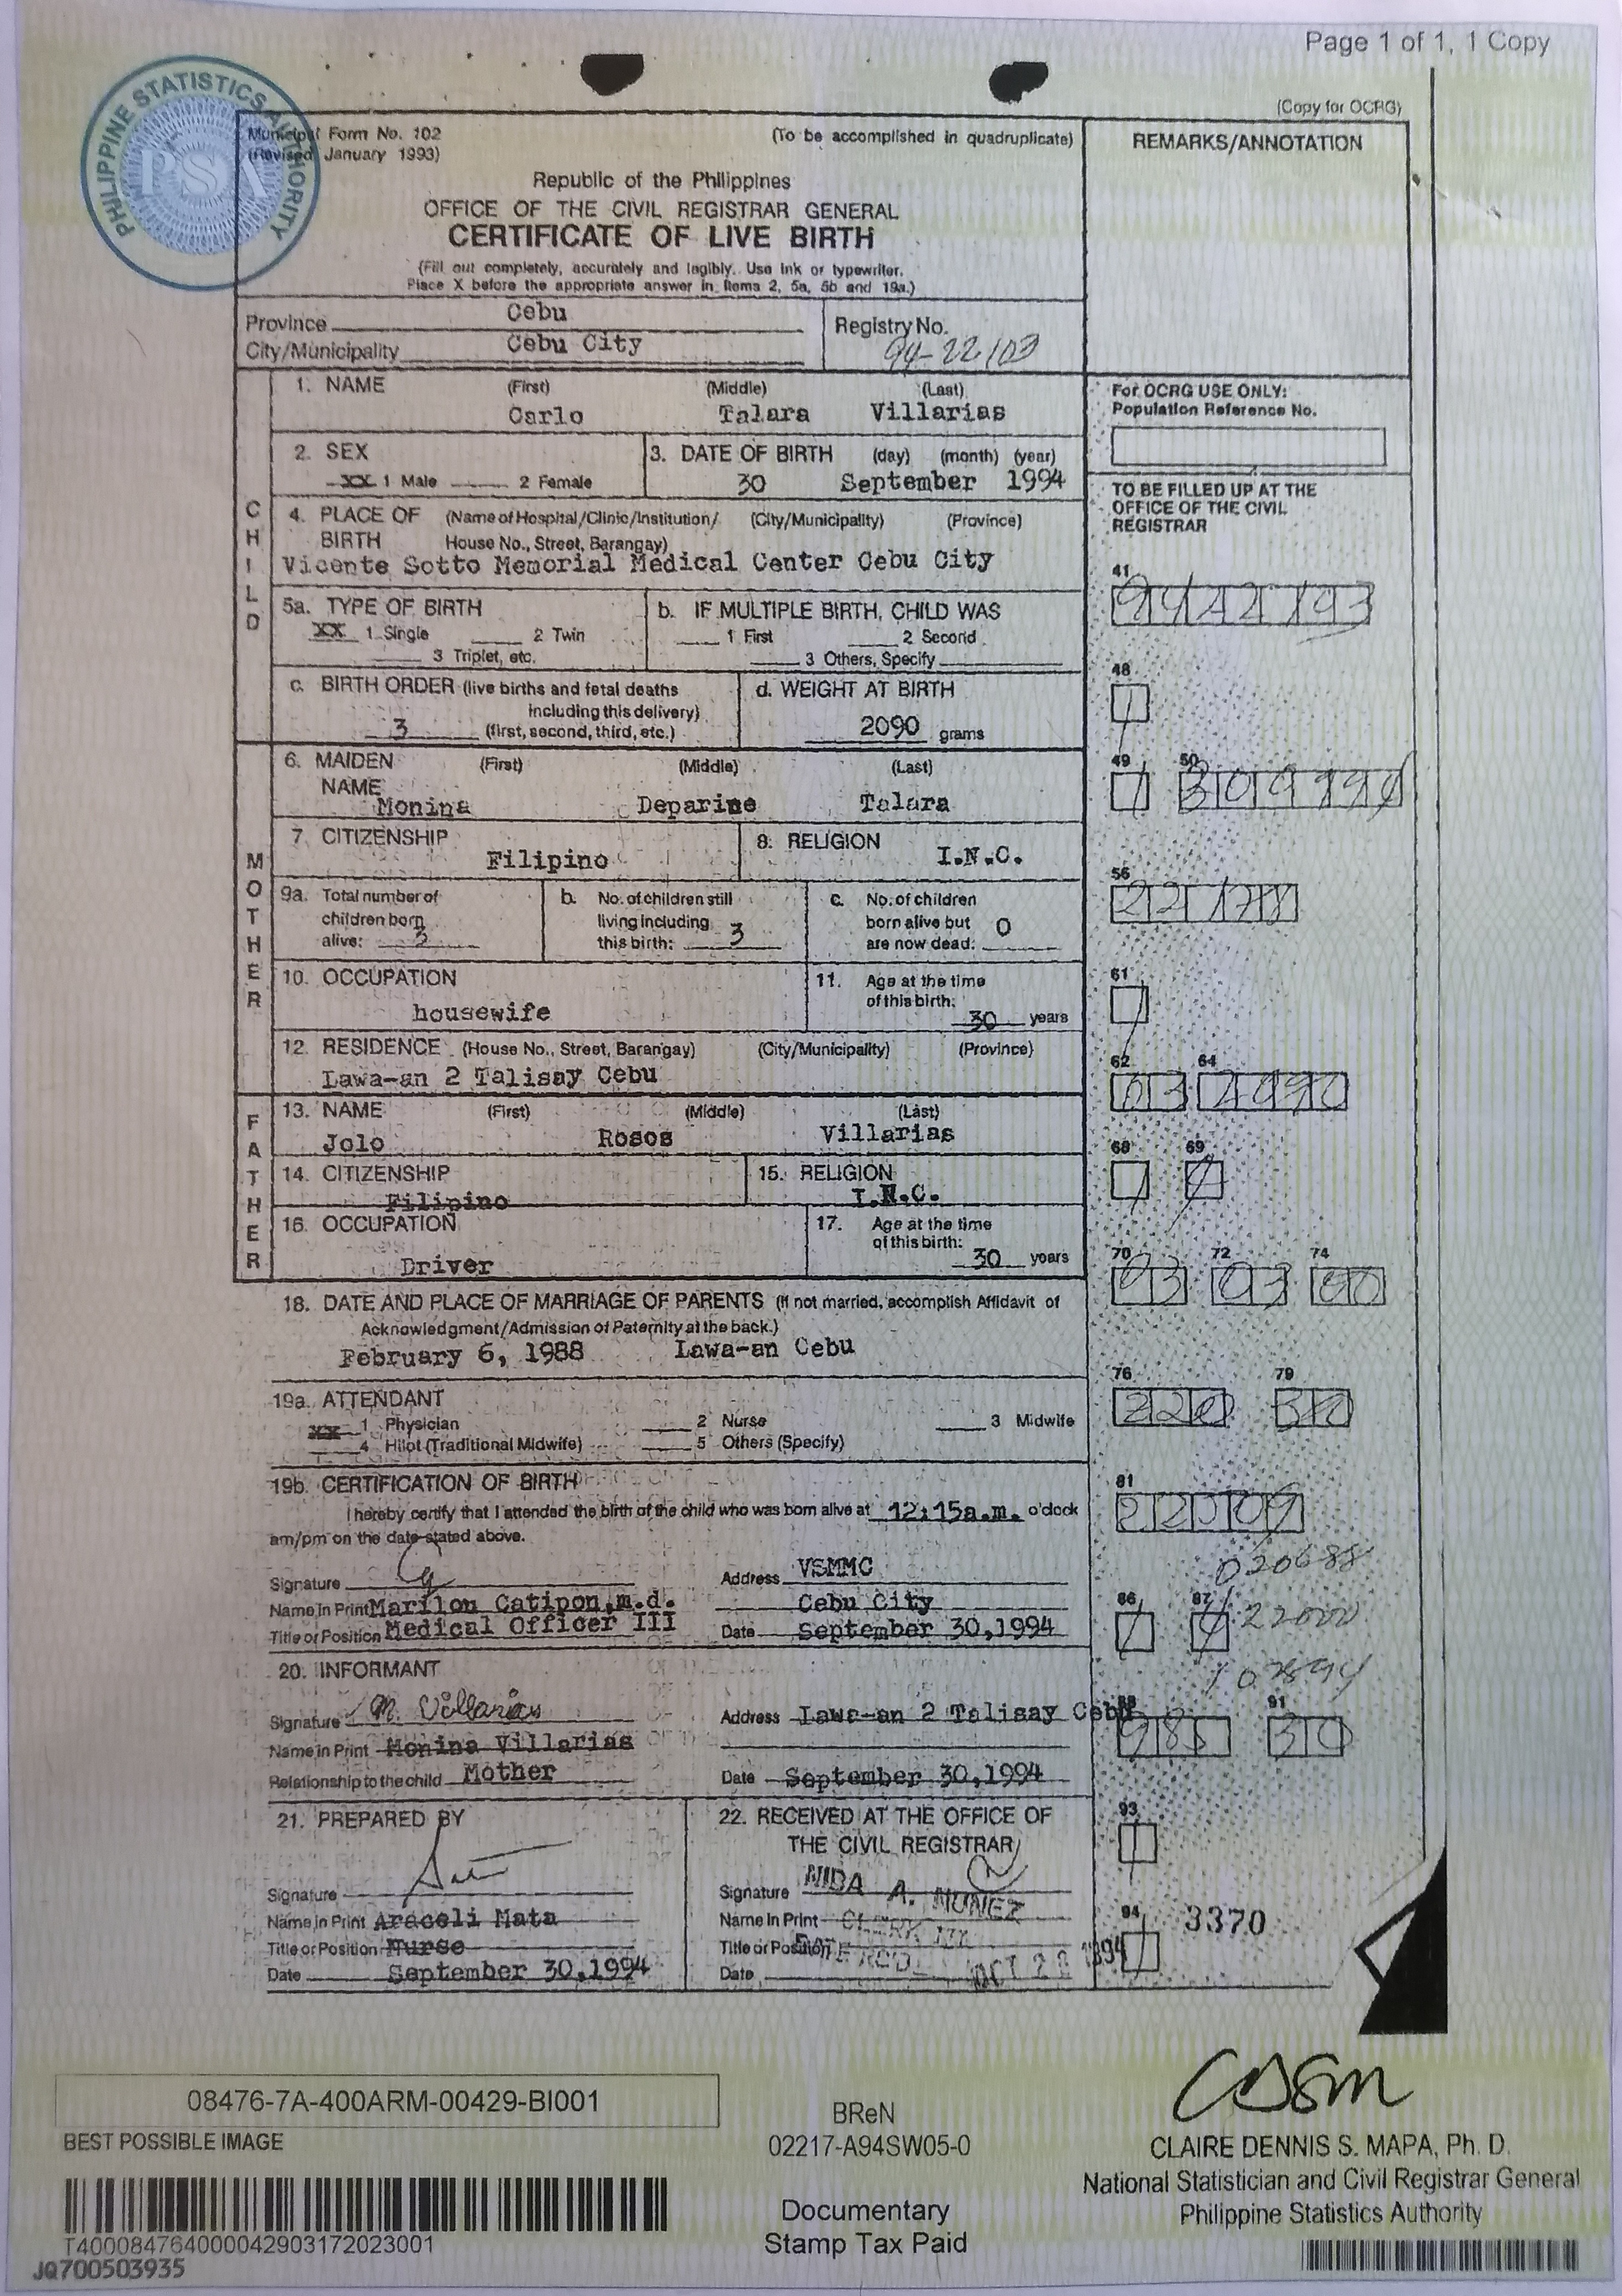 Page 1 of 1, 1 Copy
(Copy for OCRG)
PHILIPPINE STATISTICS AUTHORITY
PSA
Municipal Form No. 102
(Revised January 1993)
(To be accomplished in quadruplicate)
REMARKS/ANNOTATION
Republic of the Philippines
OFFICE OF THE CIVIL REGISTRAR GENERAL
CERTIFICATE OF LIVE BIRTH
(Fill out completely, accurately and legibly. Use ink or typewriter.
Place X before the appropriate answer in Items 2, 5a, 5b and 19a.)
Province Cebu
City/Municipality Cebu City
Registry No.
94-22103
CHILD
1. NAME (First) (Middle) (Last)
Carlo Talara Villarias
For OCRG USE ONLY:
Population Reference No.
2. SEX
XX 1 Male 2 Female
3. DATE OF BIRTH (day) (month) (year)
30 September 1994
TO BE FILLED UP AT THE
OFFICE OF THE CIVIL
REGISTRAR
4. PLACE OF BIRTH (Name of Hospital/Clinic/Institution/ (City/Municipality) (Province)
House No., Street, Barangay)
Vicente Sotto Memorial Medical Center Cebu City
41
5a. TYPE OF BIRTH
XX 1 Single 2 Twin
3 Triplet, etc.
b. IF MULTIPLE BIRTH, CHILD WAS
1 First 2 Second
3 Others, Specify
48
c. BIRTH ORDER (live births and fetal deaths
including this delivery)
3 (first, second, third, etc.)
d. WEIGHT AT BIRTH
2090 grams
MOTHER
6. MAIDEN NAME (First) (Middle) (Last)
Monina Deparine Talara
49 50
7. CITIZENSHIP
Filipino
8. RELIGION
I.N.C.
9a. Total number of
children born
alive: 3
b. No. of children still
living including
this birth: 3
c. No. of children
born alive but
are now dead: 0
56
10. OCCUPATION
housewife
11. Age at the time
of this birth:
30 years
61
12. RESIDENCE (House No., Street, Barangay) (City/Municipality) (Province)
Lawa-an 2 Talisay Cebu
62 64
FATHER
13. NAME (First) (Middle) (Last)
Jolo Rosos Villarias
14. CITIZENSHIP
Filipino
15. RELIGION
I.N.C.
68 69
16. OCCUPATION
Driver
17. Age at the time
of this birth:
30 years
70 72 74
18. DATE AND PLACE OF MARRIAGE OF PARENTS (If not married, accomplish Affidavit of
Acknowledgment/Admission of Paternity at the back.)
February 6, 1988 Lawa-an Cebu
19a. ATTENDANT
XX 1 Physician 2 Nurse 3 Midwife
4 Hilot (Traditional Midwife) 5 Others (Specify)
76 79
19b. CERTIFICATION OF BIRTH
I hereby certify that I attended the birth of the child who was born alive at 12:15a.m. o'clock
am/pm on the date stated above.
81
020688
Signature
Name in Print Marilou Catipon,m.d.
Title or Position Medical Officer III
Address VSMMC
Cebu City
Date September 30,1994
86 87
22000
20. INFORMANT
Signature M. Villarias
Name in Print Monina Villarias
Relationship to the child Mother
Address Lawa-an 2 Talisay Cebu
Date September 30,1994
88 91
21. PREPARED BY
Signature
Name in Print Araceli Mata
Title or Position Nurse
Date September 30,1994
22. RECEIVED AT THE OFFICE OF
THE CIVIL REGISTRAR
Signature NIDA A. MUNEZ
Name in Print CLERK III
Title or Position
Date
93
94
3370
08476-7A-400ARM-00429-BI001
BEST POSSIBLE IMAGE
T400084764000042903172023001
JQ700503935
BReN
02217-A94SW05-0
Documentary
Stamp Tax Paid
CLAIRE DENNIS S. MAPA, Ph. D.
National Statistician and Civil Registrar General
Philippine Statistics Authority